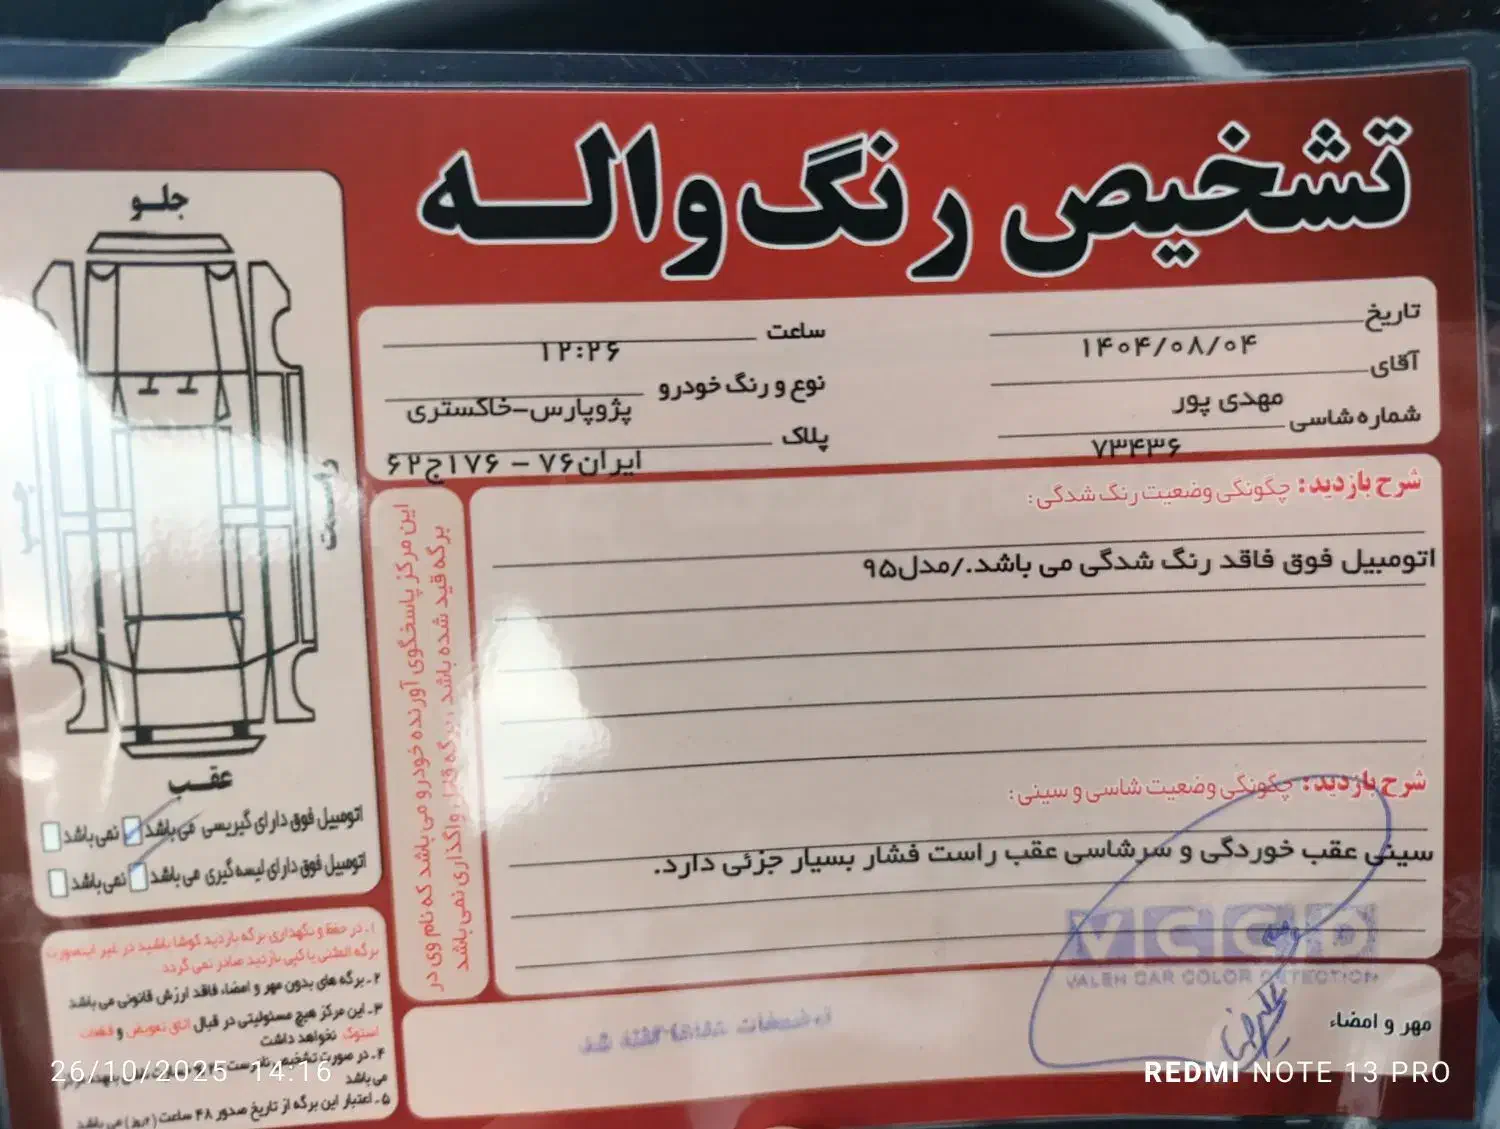 تشخیص رنگ واله
تاریخ ۱۴۰۴/۰۸/۰۴
ساعت ۱۲:۲۶
آقای مهدی پور
نوع و رنگ خودرو پژوپارس-خاکستری
شماره شاسی ۷۳۴۳۶
پلاک ایران۷۶ - ۱۷۶ج۶۲
شرح بازدید: چگونگی وضعیت رنگ شدگی:
اتومبیل فوق فاقد رنگ شدگی می باشد./مدل۹۵
شرح بازدید: چگونگی وضعیت شاسی و سینی:
سینی عقب خوردگی و سرشاسی عقب راست فشار بسیار جزئی دارد.
VCCD
VALEH CAR COLOR DETECTION
مهر و امضاء
این مرکز پاسخگوی آورنده خودرو می باشد که نام وی در
برگه قید شده باشد. برگه قابل واگذاری نمی باشد
جلو
راست
عقب
اتومبیل فوق دارای گیریسی می باشد نمی باشد
اتومبیل فوق دارای لیسه گیری می باشد نمی باشد
۱- در حفظ و نگهداری برگه بازدید کوشا باشید در غیر اینصورت
برگه المثنی یا کپی بازدید صادر نمی گردد
۲- برگه های بدون مهر و امضاء فاقد ارزش قانونی می باشد
۳- این مرکز هیچ مسئولیتی در قبال اتاق تعویض و قطعات
استوک نخواهد داشت
۴- در صورت تشخیص
می باشد
۵- اعتبار این برگه از تاریخ صدور ۴۸ ساعت (۲روز) می باشد
26/10/2025 14:16
REDMI NOTE 13 PRO